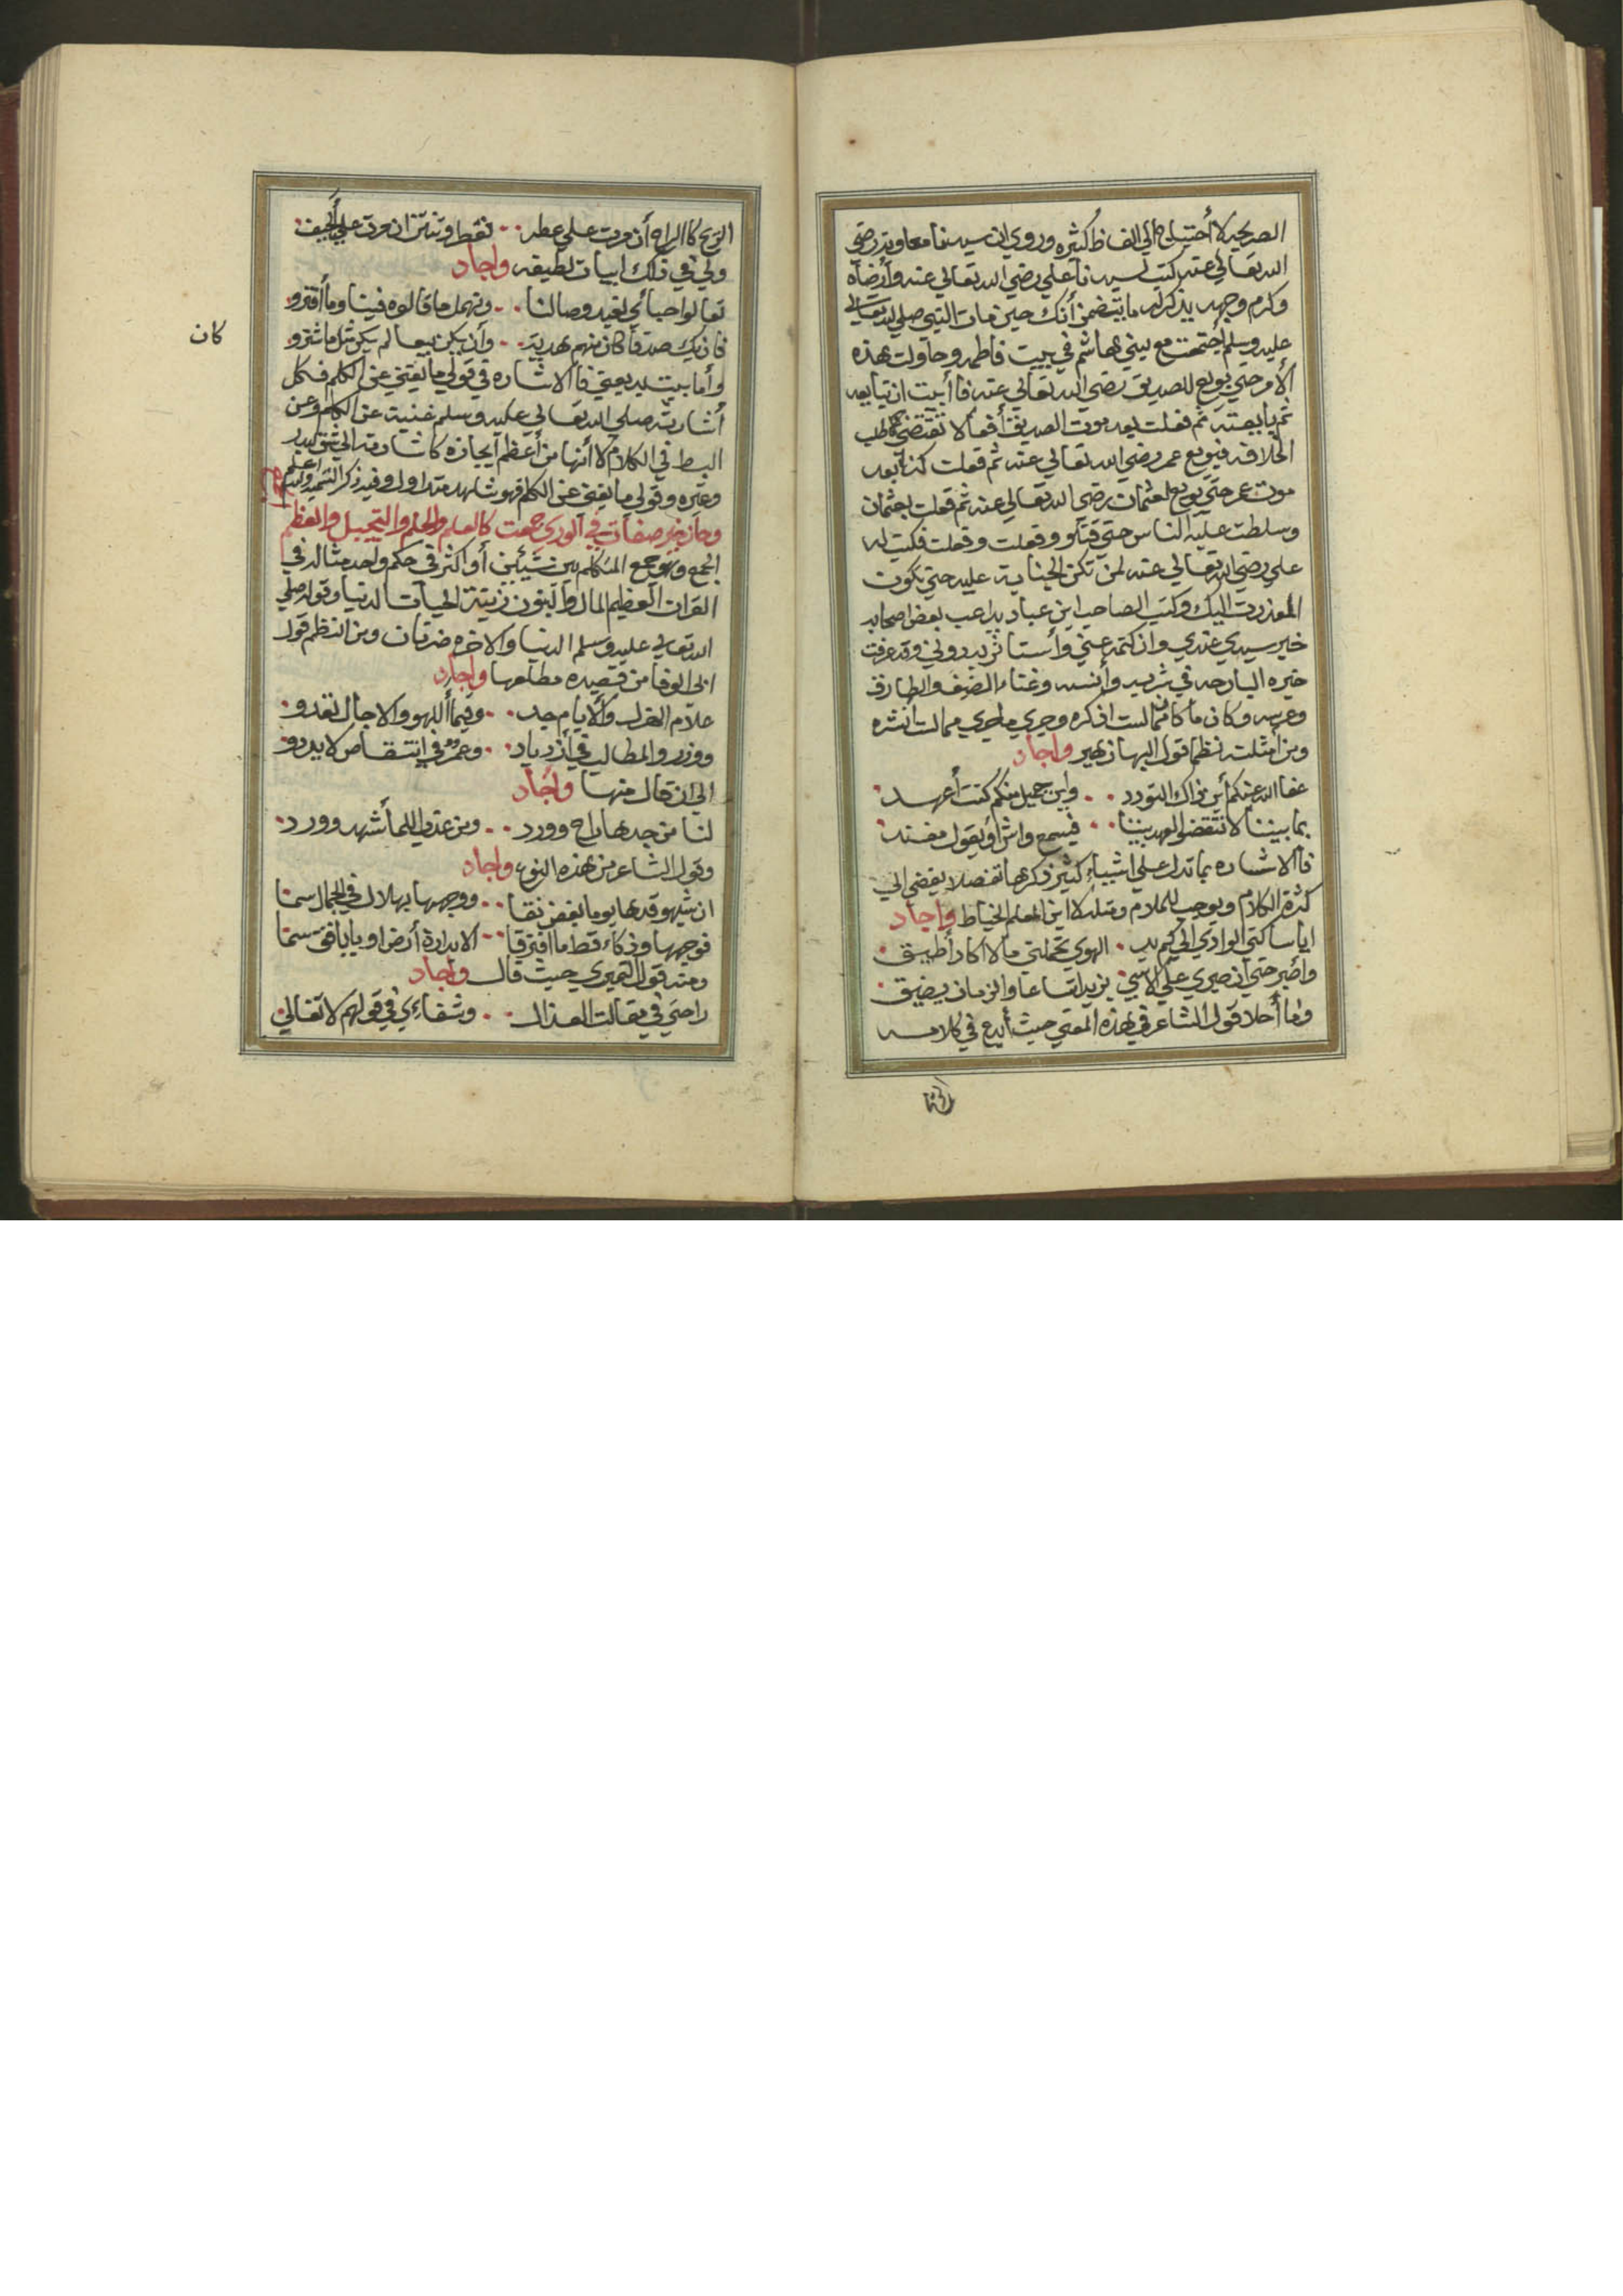 الصريحيه لاأحتياج الي الفاظ كثيره وروي ان سيدنا معاويه رضي
الله تعالي عنه كتب لسيدنا علي رضي الله تعالي عنه وأرضاه
وكرم وجهه يذكر له ما يتضمن أنك حين مات النبي صلي الله تعالي
عليه وسلم أجتمعت مع بيني هاشم في بييت فاطمه وحاولت هذه
الأمر حتي بويع للصديق رضي الله تعالي عنه فاأبيت ان تبايعه
ثم بايعته ثم فعلت بعد موت الصديق أفعالا تقتضي طلب
الخلافه فبويع عمر رضي الله تعالي عنه ثم فعلت كذا بعد
موت عمر حتي بويع لعثمان رضي الله تعالي عنه ثم فعلت بعثمان
وسلطت عليه الناس حتي قتلو وفعلت وفعلت فكتب له
علي رضي الله تعالي عنه لمن تكن الجنايه عليه حتي تكون
المعذرت اليك وكتب الصاحب ابن عباد يداعب بعض اصحابه
خبر سيدي عندي وان كتمه عني وأستاثر به دوني وقد عرفت
خبره البارحه في شربه وأنسه وغناء الضيف والطارق
وعرسه وكان ما كان مما لست اذكره وجري ماجري مما لست انشره
ومن أمثلته نظما قول البها زهير واجاد
عفا الله عنكم أين ذاك التودد وابن جميل منكم كنت أعهد
بما بيننا لا تنقضو العهد بيننا فيسمع واش أو يقول مفند
فاالاشاره بما تدل علي اشياء كثير ذكرها تفصلا يفضي الي
كثرة الكلام ويوجب للملام ومثله لاابن المعلم الخياط واجاد
ايا ساكني الوادي الي كم يد الهوي تحملني مالا اكاد أطيق
واصبر حتي ان صبري علي الاسي يزيد اتساعا والزمان يضيق
وما أحلا قول الشاعر في هذه المعني حيث أبدع في كلامه
الريح كاالراح أن مرت علي عطر تعطر وتنتن ان مرت علي الجيف
ولي في ذلك ابيات لطيفه واجاد
تعالوا حبائي نعيد وصالنا ونهمل ماقالوه فينا وماأفترو
فان يك صدقا كان منهم هديت وأن يكن بيعا لم يكن مثل ما شترو
كان
وأما بيت بديعيتي فاالاشاره في قولي ما يغني عن الكلم فكل
أشارته صلي الله تعالي عليه وسلم غنيت عن الكلام وعن
البسط في الكلام لاأنها من أعظم أيجازه كاشارته الي شق البدر
وغيره وقولي ما يغني عن الكلم فهو شاهد متداول وفيه ذكر التسميه والله اعلم
وحاز خير صفات في الوري جمعت كالعلم والحلم والتبجيل والعظم
الجمع وهو جمع المتكلم بين شيئين أو اكثر في حكم واحد مثاله في
القران العظيم المال والبنون زينة الحيات الدنيا وقوله صلي
الله تعالي عليه وسلم الدنيا والاخره ضرتان ومن النظم قول
ابي الوفا من قصيده مطلعها واجاد
علام الهزل والأيام جد وفيما أللهو والاجال تعدو
ووزر والمطالب في أزدياد وعمر في انتقاص لا يرد
الي ان قال منها واجاد
لنا من جدها راح وورد ومن عذب اللما أشهد وورد
وقول الشاعر من هذه النوع واجاد
ان شبهو قدها يوما بغصن نقا ووجهها بهلال في الجمال سما
فوجهها وذكاء قط ما افترقا
ومنه قول النميري حيث قال واجاد
راحتي في مقالت العذال وشفاءي في قولهم لا تغالي